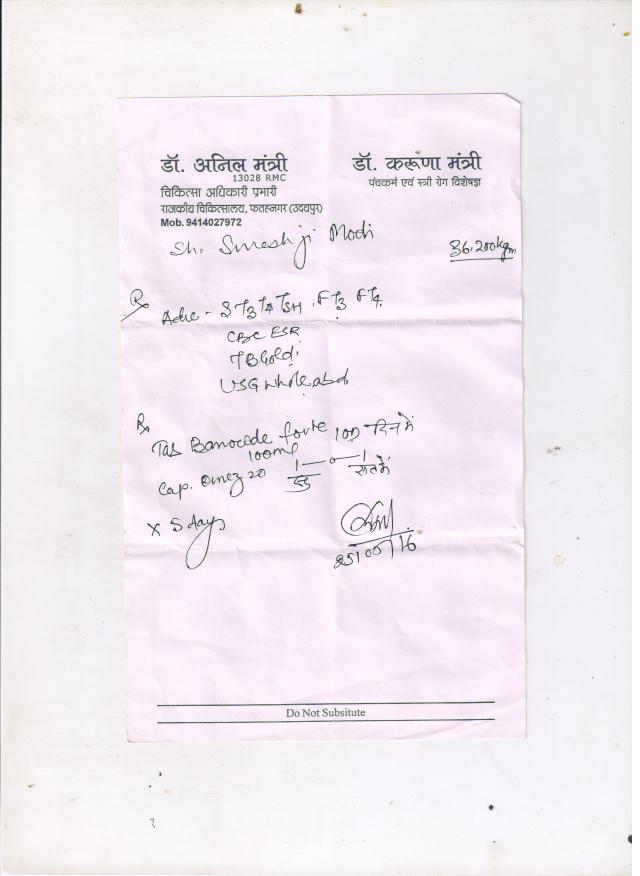 डॉ. अनिल मंत्री
13028 RMC
चिकित्सा अधिकारी प्रभारी
राजकीय चिकित्सालय, फतहनगर (उदयपुर)
Mob. 9414027972
डॉ. करूणा मंत्री
पंचकर्म एवं स्त्री रोग विशेषज्ञ
Sh. Sureshji Modi
36.200kgm
Rx
Adv - S T3 T4 TSH, FT3 FT4.
CBC ESR
TB Gold
USG whole abd
Rx
Tab Banocide forte 100 दिन में
100mg
Cap. Omez 20 1—0—1 रात में
x 5 days
25/05/16
Do Not Subsitute